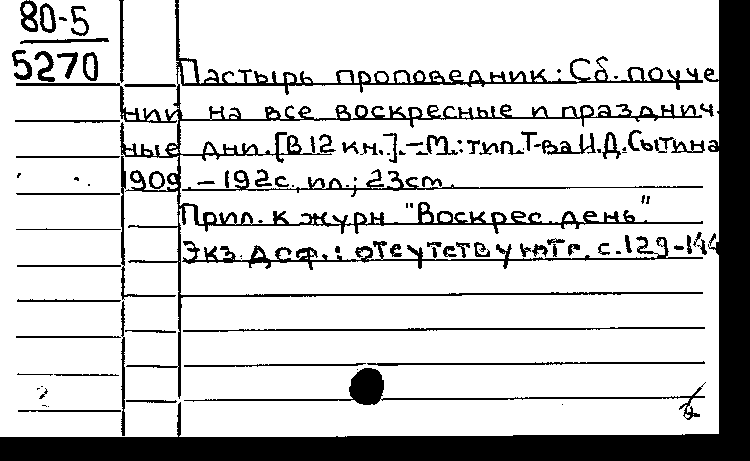 80-5
5270
Пастырь проповедник: Сб. поуче
ний на все воскресные и празднич.
ные дни. [В 12 кн.]. – М.: тип. Т-ва И.Д. Сытина
1909. – 192с., ил.; 23см.
Прил. к журн. "Воскрес. день".
Экз. деф.: отсутствуют с. 129-144